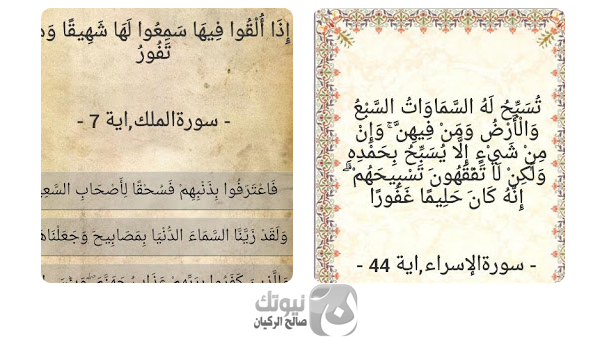 إِذَا أُلْقُوا فِيهَا سَمِعُوا لَهَا شَهِيقًا
تَفُورُ
- سورةالملك,اية 7 -
فَاعْتَرَفُوا بِذَنْبِهِمْ فَسُحْقًا لِأَصْحَابِ
وَلَقَدْ زَيَّنَّا السَّمَاءَ الدُّنْيَا بِمَصَابِيحَ
تُسَبِّحُ لَهُ السَّمَاوَاتُ السَّبْعُ
وَالْأَرْضُ وَمَنْ فِيهِنَّ ۚ وَإِنْ
مِنْ شَيْءٍ إِلَّا يُسَبِّحُ بِحَمْدِهِ
وَلَٰكِنْ لَا تَفْقَهُونَ تَسْبِيحَهُمْ ۗ
إِنَّهُ كَانَ حَلِيمًا غَفُورًا
- سورةالإسراء,اية 44 -
نيوتك
صالح الركيان